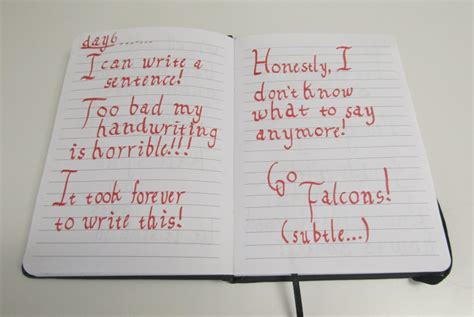 day6........
I can write a
sentence!
Too bad my
handwriting
is horrible!!!
It took forever
to write this!
Honestly, I
don't know
what to say
anymore!
Go
Falcons!
(subtle...)